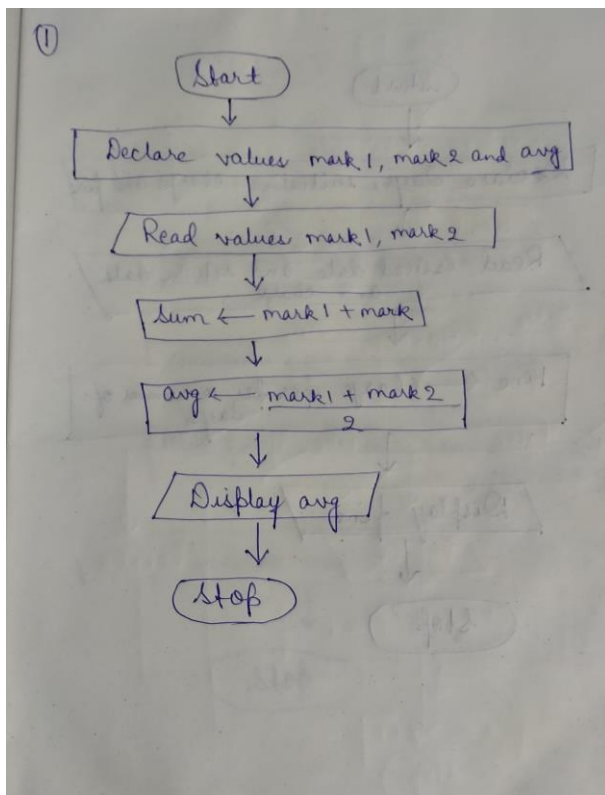 1
Start
Declare values mark 1, mark 2 and avg
Read values mark1, mark 2
Sum ← mark 1 + mark
avg ← mark1 + mark 2
2
Display avg
Stop